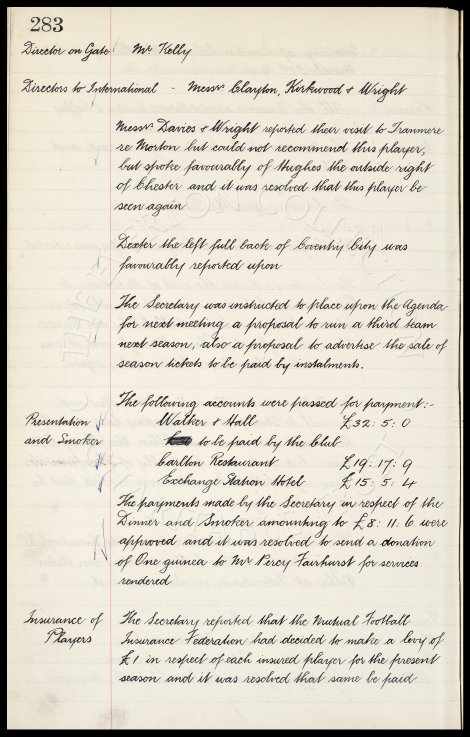 283
Director on Gate Mr Kelly
Directors to International - Messrs. Clayton, Kirkwood & Wright
Messrs. Davies & Wright reported their visit to Tranmere
re Morton but could not recommend this player,
but spoke favourably of Hughes the outside right
of Chester and it was resolved that this player be
seen again
Dexter the left full back of Coventry City was
favourably reported upon
The Secretary was instructed to place upon the Agenda
for next meeting a proposal to run a third team
next season, also a proposal to advertise the sale of
season tickets to be paid by instalments.
The following accounts were passed for payment:-
Presentation Walker & Hall £32: 5: 0
and Smoker to be paid by the Club
Carlton Restaurant £19: 17: 9
Exchange Station Hotel £15: 5: 4
The payments made by the Secretary in respect of the
Dinner and Smoker amounting to £8: 11: 6 were
approved and it was resolved to send a donation
of One guinea to Mr Percy Fairhurst for services
rendered
Insurance of The Secretary reported that the Mutual Football
Players Insurance Federation had decided to make a levy of
£1 in respect of each insured player for the present
season and it was resolved that same be paid